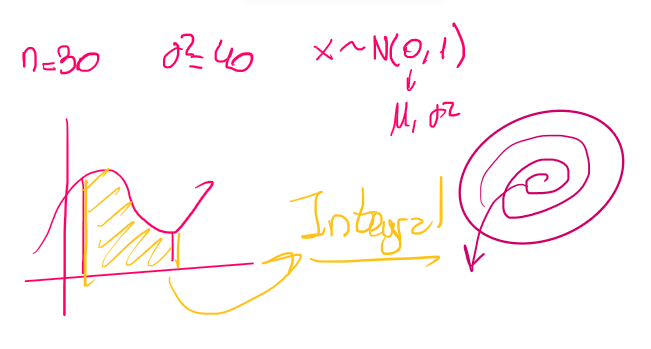 n=30 σ²=40 x~N(0,1)
μ, σ²
Integral